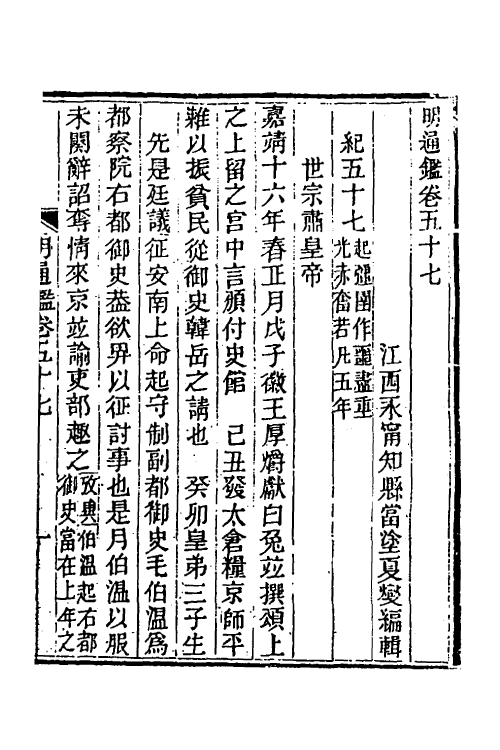 明通鑑卷五十七
江西永甯知縣當塗夏燮編輯
紀五十七起彊圉作噩盡重光赤奮若凡五年
世宗肅皇帝
嘉靖十六年春正月戊子徽王厚爝獻白兔並撰頌上
之上留之宮中言頒付史館　己丑發太倉糧京師平
糶以振貧民從御史韓岳之請也　癸卯皇弟三子生
先是廷議征安南上命起守制副都御史毛伯溫爲
都察院右都御史葢欲畀以征討事也是月伯溫以服
未闋辭詔奪情來京並諭吏部趣之攷異伯溫起右都御史當在上年之
明通鑑卷五十七　一